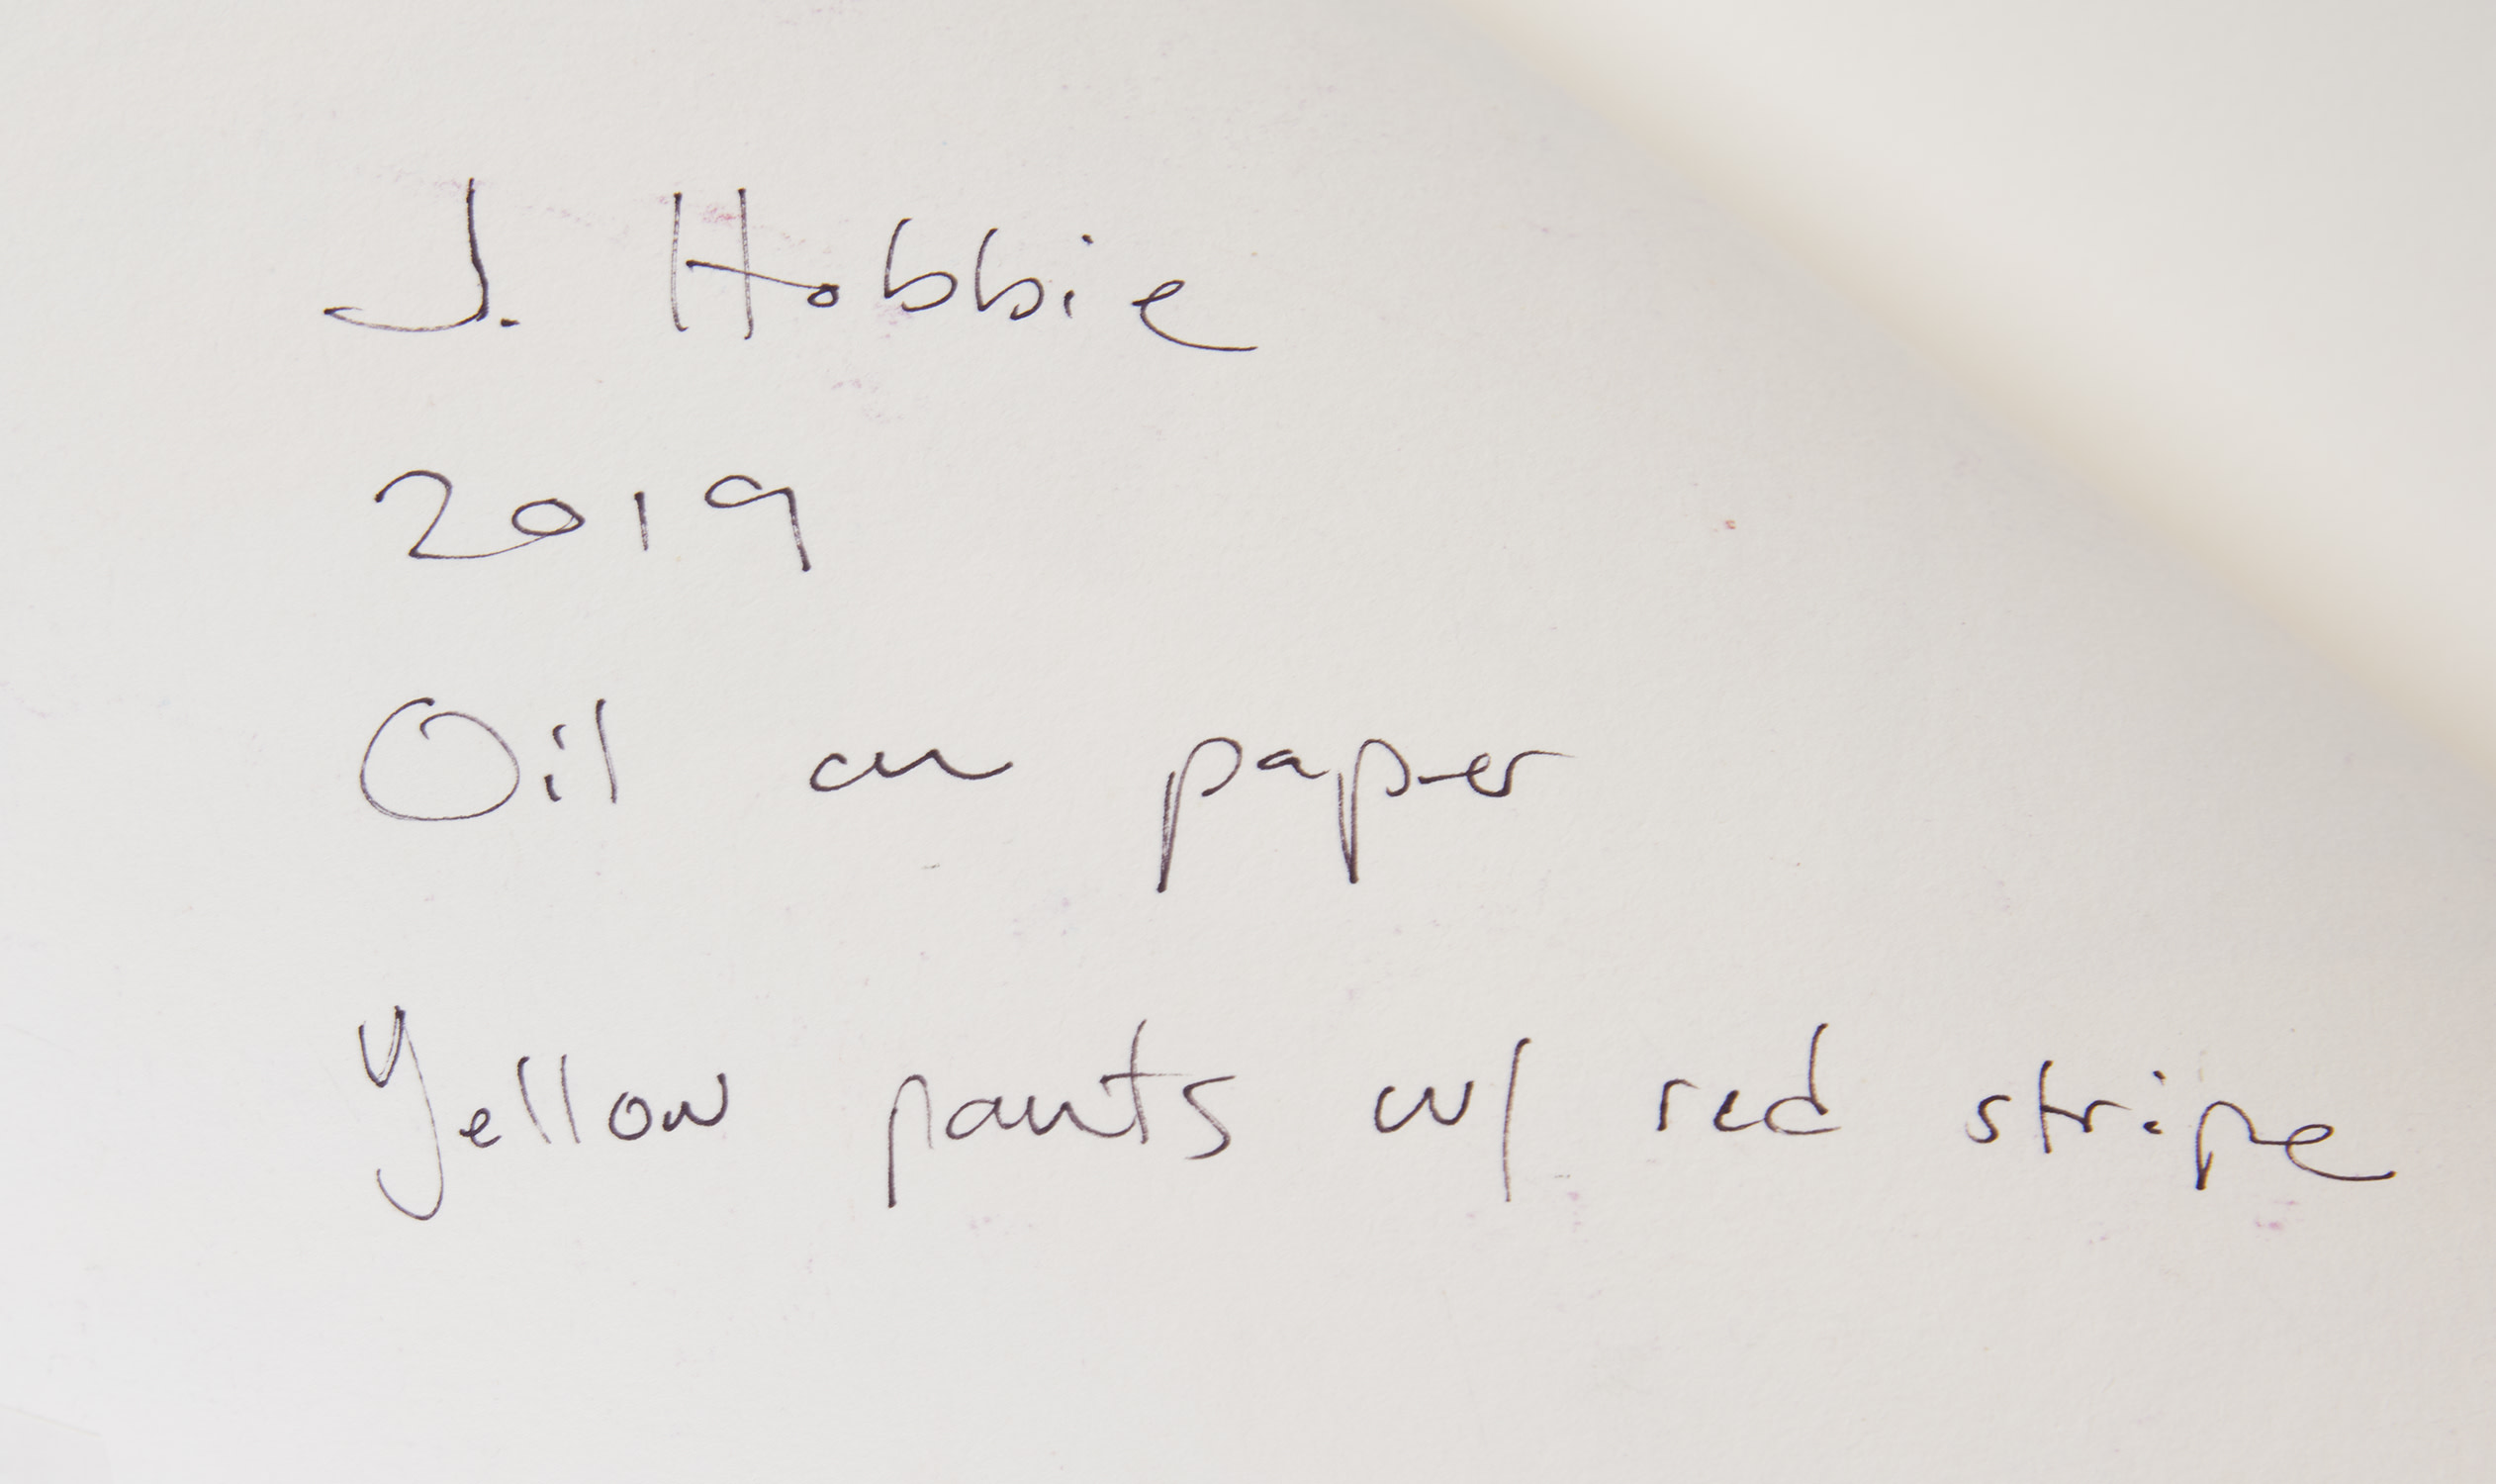 J. Hobbie
2019
Oil on paper
Yellow pants w/ red stripe